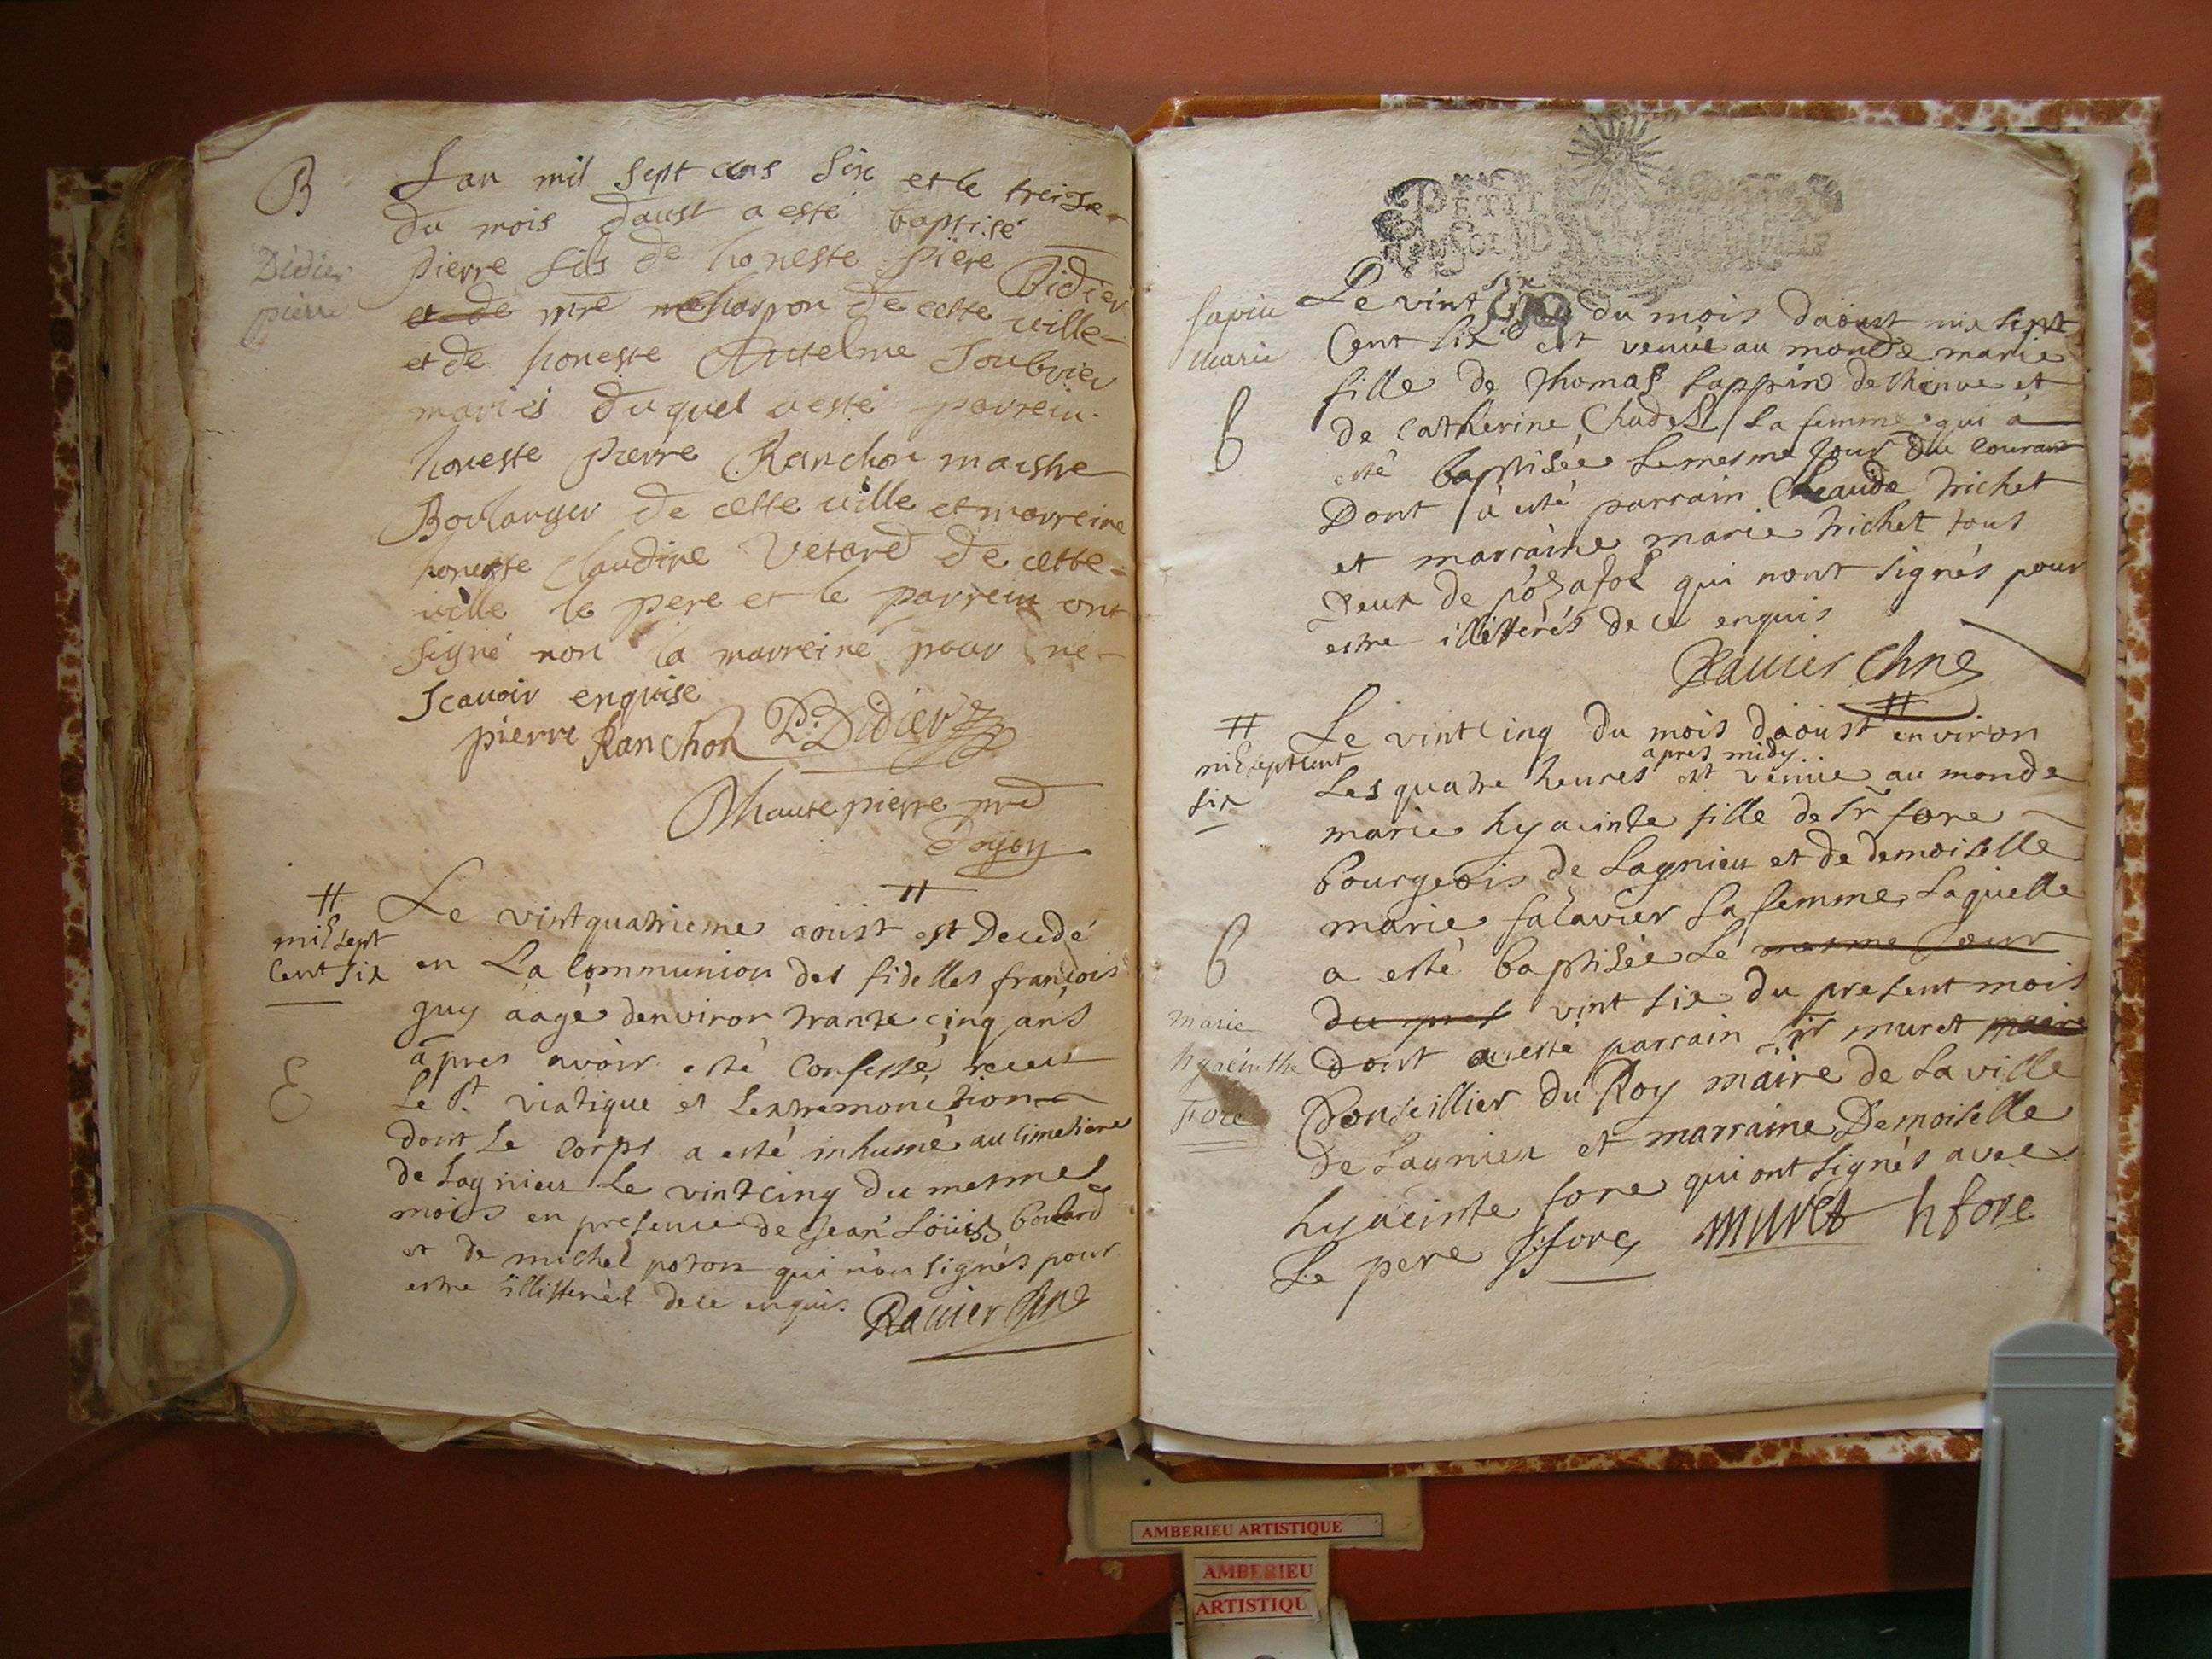 B
Lan mil sept cens six et le treize
du mois daust a esté baptisé
Didier
pierre
pierre fils de honeste piere Didier
et de mre charpon de cette ville
et de honeste Anselme Joubvier
mariés duquel a esté parrein
honeste pierre Ranchon maistre
Boulanger de cette ville et marreine
honeste Claudine Vetard de cette
ville le pere et le parrein ont
signé non la marreine pour ne
scavoir enquise
pierre Ranchon P. Didier
Dhautepierre pred
Doyon
#
mil sept
cent six
Le vintquatrieme aoust # est decedé
en La Communion des fidelles françois
guy aagé denviron trante cinq ans
E
apres avoir esté Confessé, receut
Le st. viatique et Lextremonction
dont Le Corps a esté inhumé au cimetiere
de Lagnieu Le vintcinq du mesme
mois en presence de Jean Loüis boulard
et de michel poton qui n'on signés pour
estre illitterés de ce enquis Ravier Chne
PETIT
SOL D
sapin
marie
B
Le vint six du mois daoust mil sept
Cent six est venüe au monde marie
fille de Thomas sappin de
de Catherine Chudel sa femme qui a
esté baptisée Le mesme jour du courant
Dont a esté parrain Claude trichet
et marraine marie trichet tous
deux de posafol qui nont signés pour
estre illitterés de ce enquis
Ravier Chne
#
mil sept cent
six
Le vintcinq du mois daoust # environ
Les quatre heures apres midy est venüe au monde
marie hyacinte fille de sr fore
bourgeois de Lagnieu et de demoiselle
marie falavier sa femme, Laquelle
B
a esté baptisée Le mesme jour
du pres vint six du present mois
marie
hyacinthe
Fore
dont a esté parrain sr muret maire
Conseillier du Roy maire de La ville
de Lagnieu et marraine Demoiselle
hyacinte fore qui ont signés avec
Le pere fore muret h fore
AMBERIEU ARTISTIQUE
AMBERIEU
ARTISTIQU